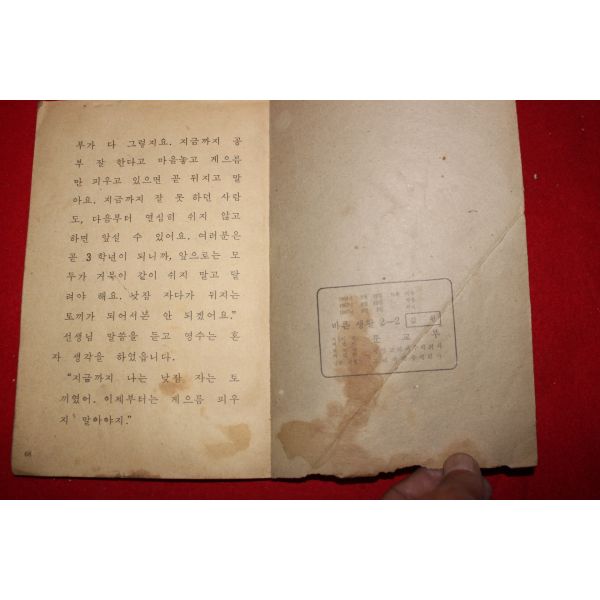 두가 다 그렇지요. 지금까지 공
부 잘 한다고 마음놓고 게으름
만 피우고 있으면 곧 뒤지고 말
아요. 지금까지 잘 못 하던 사람
도, 다음부터 열심히 쉬지 않고
하면 앞설 수 있어요. 여러분은
곧 3학년이 되니까, 앞으로는 모
두가 거북이 같이 쉬지 말고 달
려야 해요. 낮잠 자다가 뒤지는
토끼가 되어서본 안 되겠어요."
선생님 말씀을 듣고 영수는 혼
자 생각을 하였읍니다.
"지금까지 나는 낮잠 자는 토
끼였어. 이제부터는 게으름 피우
지 말아야지."
68
바른 생활 2-2
문 교 부